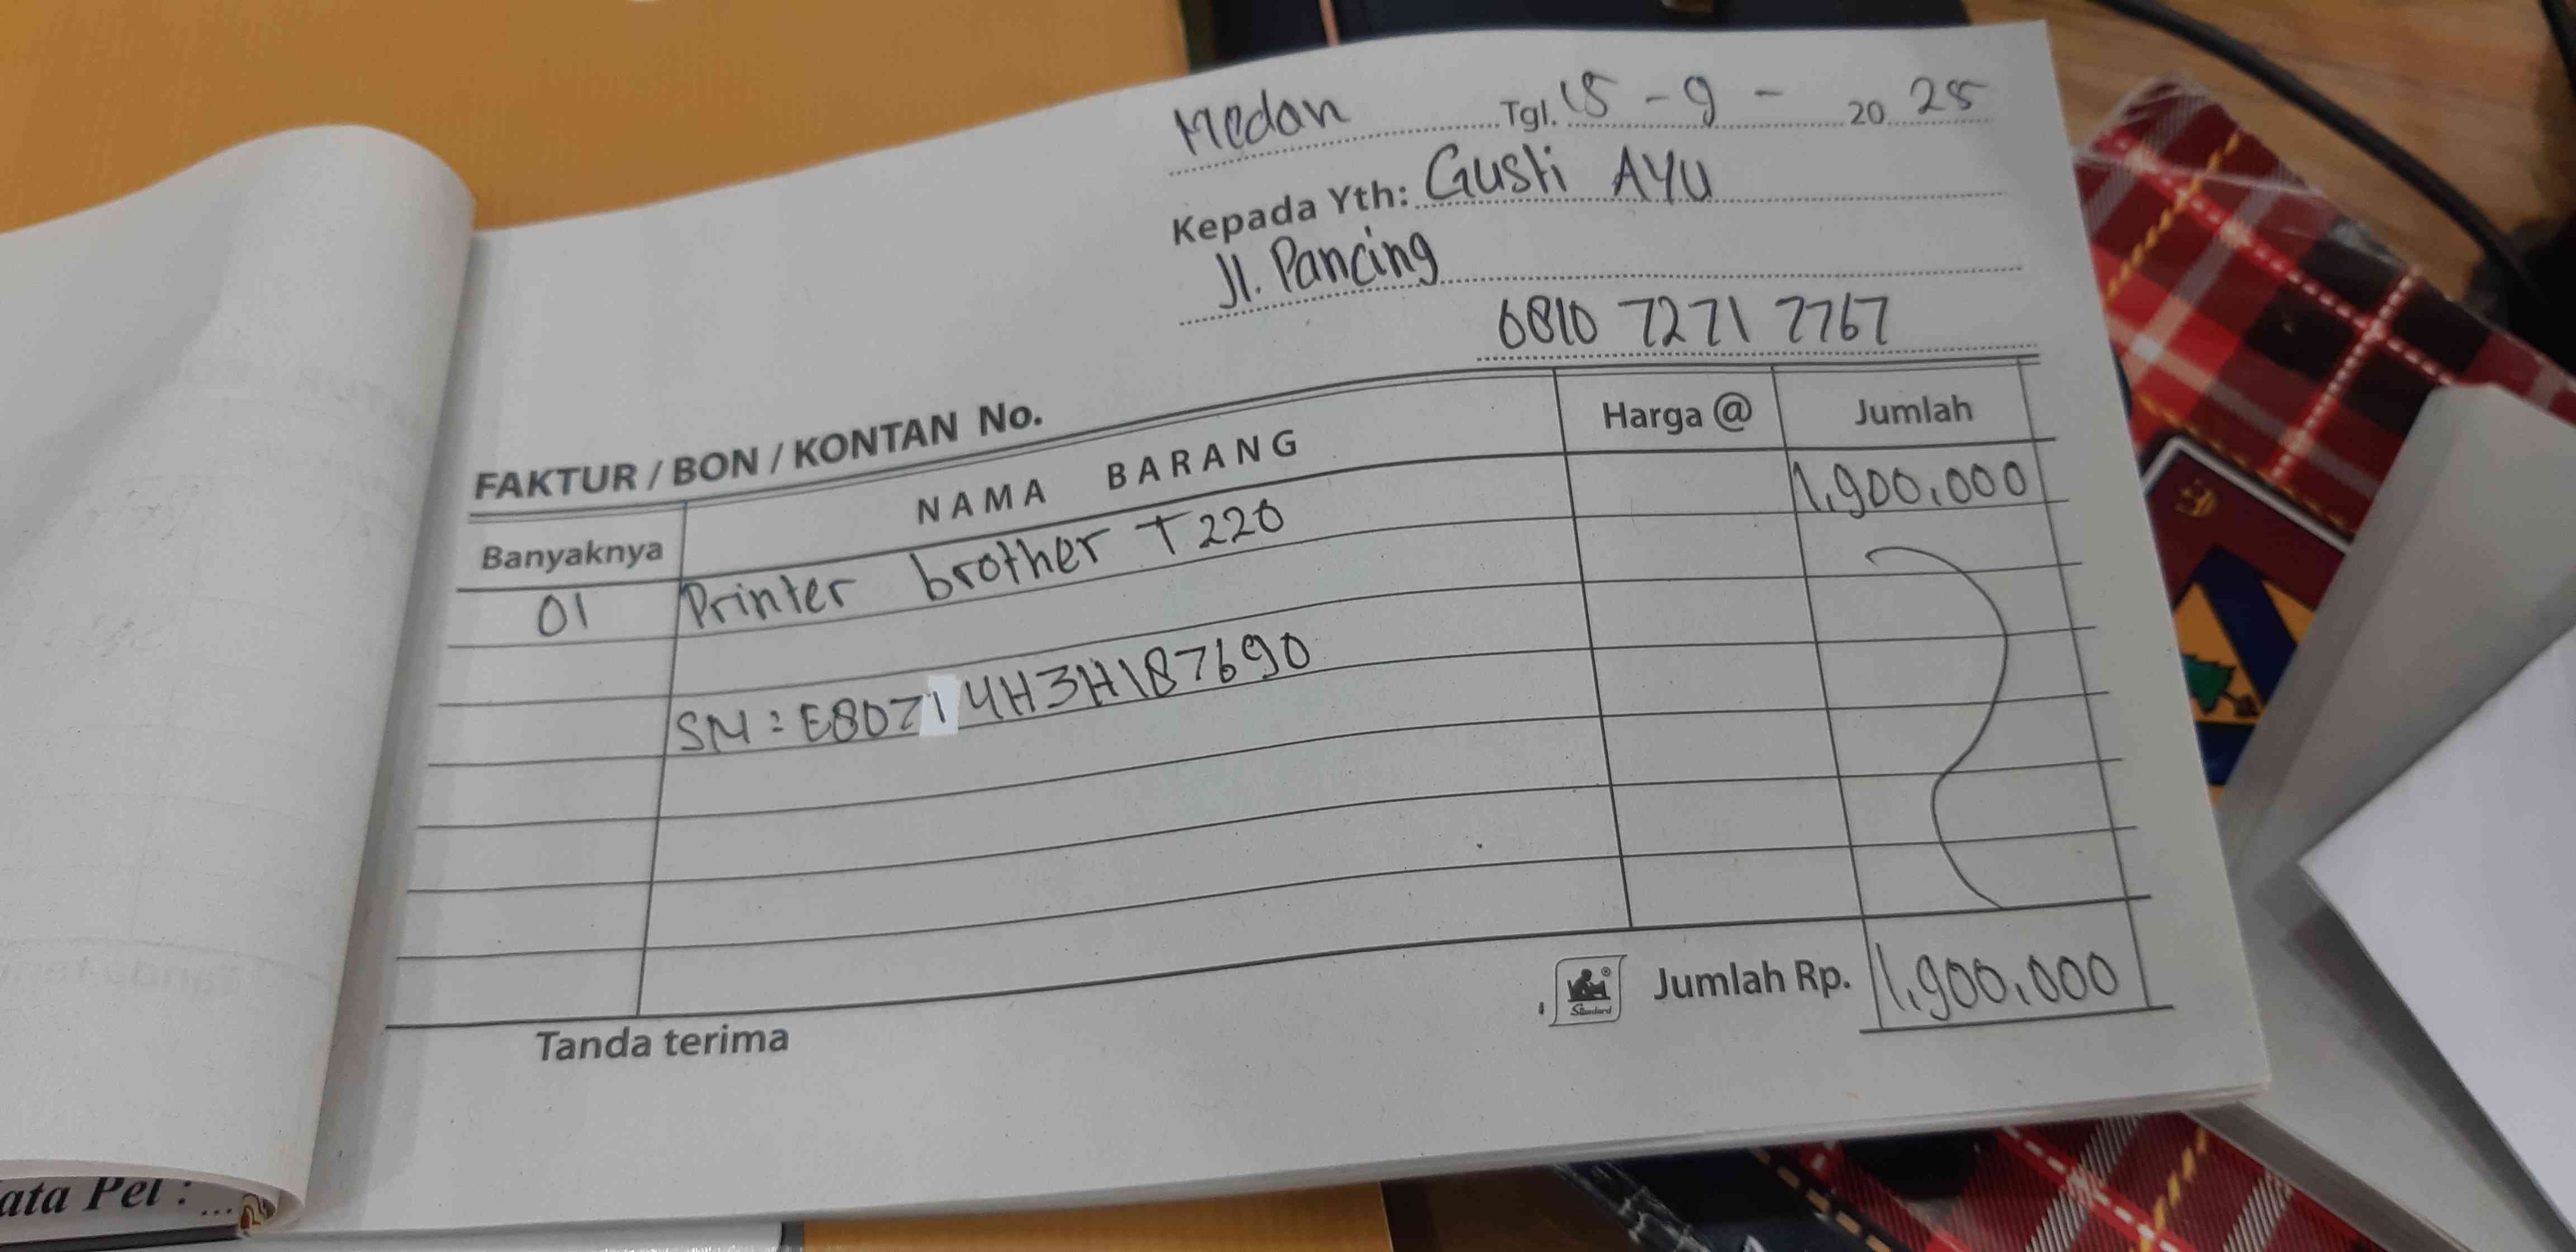 Medan Tgl. 15 - 9 - 20 25
Kepada Yth: Gusti AYU
Jl. Pancing
0810 7271 7767
FAKTUR / BON / KONTAN No.
Banyaknya NAMA BARANG Harga @ Jumlah
01 Printer brother T220 1.900.000
SN : E80Z14H3H187690
Standard Jumlah Rp. 1.900.000
Tanda terima
ata Pel : ...